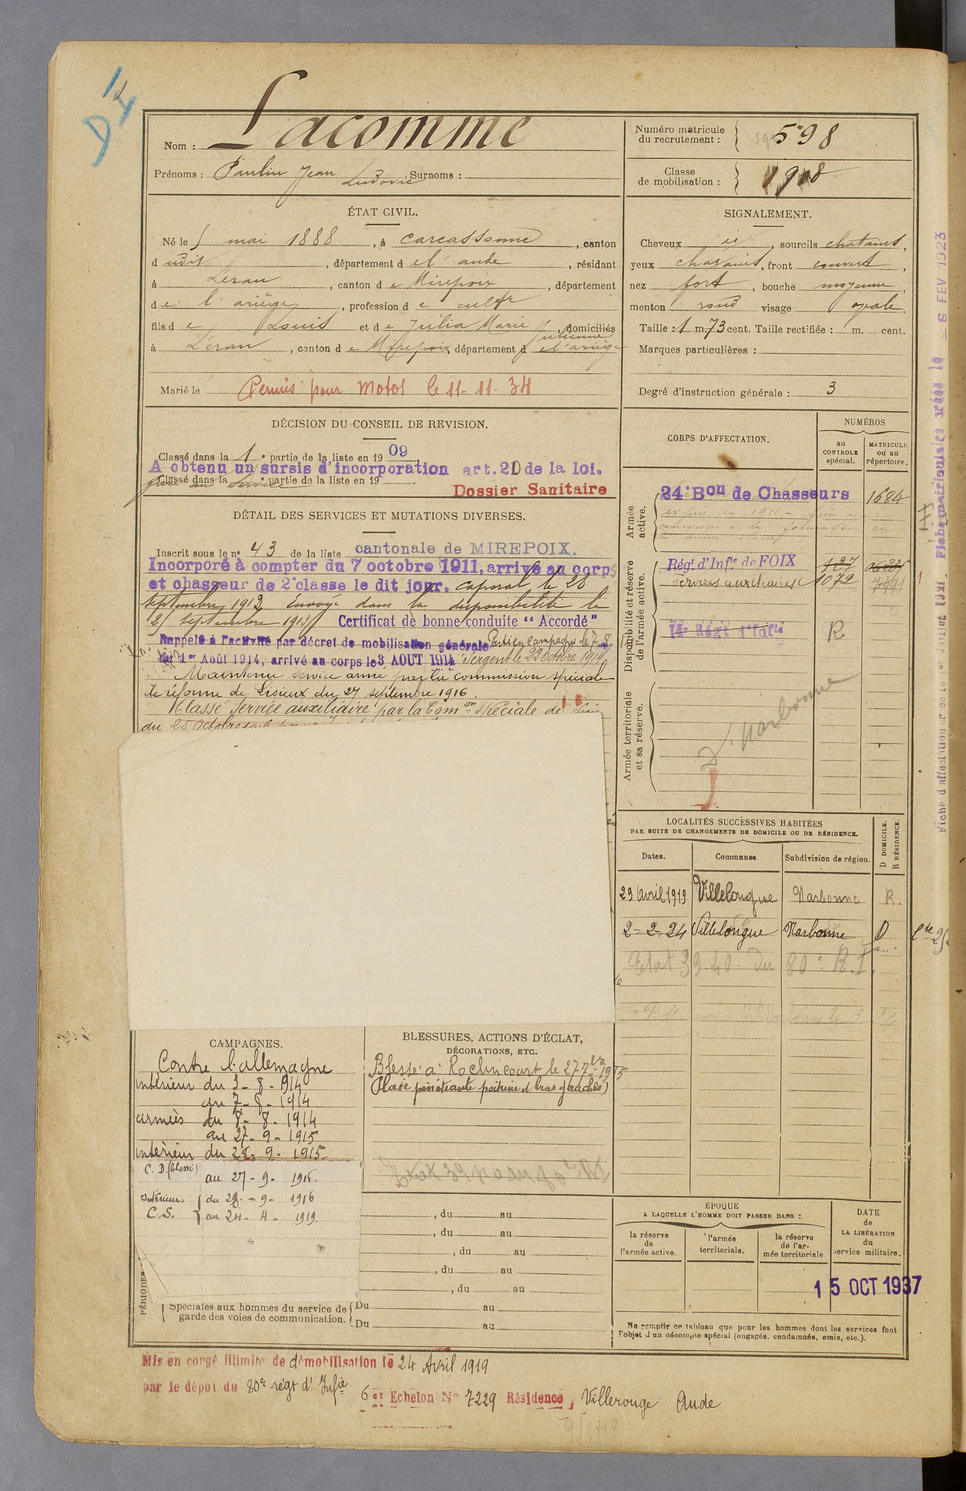 D I
Nom : Lacomme
Prénoms : Paulin Jean Ludovic Surnoms :
Numéro matricule du recrutement : 598
Classe de mobilisation : 1908
ÉTAT CIVIL.
Né le 5 mai 1888, à Carcassonne, canton
d udit, département de l'aude, résidant
à Léran, canton de Mirepoix, département
de l'ariège, profession de cultr
fils de Louis et de Julia Marie, domiciliés
à Léran, canton de Mirepoix, département de l'ariège
Marié le
Permis pour Motos le 11-11-34
SIGNALEMENT.
Cheveux et, sourcils chatains,
yeux chatains, front couvert,
nez fort, bouche moyenne,
menton rond visage ovale.
Taille : 1 m. 73 cent. Taille rectifiée : 1 m. cent.
Marques particulières :
Degré d'instruction générale : 3
DÉCISION DU CONSEIL DE REVISION.
Classé dans la 1e partie de la liste en 1909
A obtenu un sursis d'incorporation art. 20 de la loi.
Classé dans la partie de la liste en 19
Dossier Sanitaire
DÉTAIL DES SERVICES ET MUTATIONS DIVERSES.
Inscrit sous le n° 43 de la liste cantonale de MIREPOIX.
Incorporé à compter du 7 octobre 1911, arrivé au corps
et chasseur de 2e classe le dit jour. Caporal le 28
septembre 1912. Envoyé dans la disponibilité le
septembre 1913. Certificat de bonne conduite "Accordé"
Rappelé à l'activité par décret de mobilisation générale
du 1er Août 1914, arrivé au corps le 3 AOUT 1914 Sergent le 29 octobre 1914
Maintenu service armé par la commission spéciale
de réforme de Lisieux du 27 septembre 1916.
Classé Service auxiliaire par la Comon Spéciale de
du 25 Octobre
CORPS D'AFFECTATION.
NUMÉROS
au CONTROLE spécial.
MATRICULE ou au répertoire.
Armée active.
24e Bon de Chasseurs 1684
Disponibilité et réserve de l'armée active.
Régt d'Infie de FOIX
services auxiliaires 1072
Régt d'Infie R
Armée territoriale et sa réserve.
Narbonne
LOCALITÉS SUCCESSIVES HABITÉES
PAR SUITE DE CHANGEMENTS DE DOMICILE OU DE RÉSIDENCE.
Dates. Communes. Subdivision de région. D DOMICILE. R RÉSIDENCE.
29 Avril 1919 Villelongue Narbonne R.
2-2-24 Villelongue Narbonne D
Etat 39-40 du 80e R.I.
CAMPAGNES.
Contre l'allemagne
intérieur du 3-8-914
au 7-8-1914
armées du 8-8-1914
au 27-9-1915
intérieur du 28-9-1915
C.D. (blessé) au 27-9-1916
Intérieur du 28-9-1916
C.S. au 24-4-1919.
BLESSURES, ACTIONS D'ÉCLAT,
DÉCORATIONS, ETC.
Blessé à Roclincourt le 27 7bre 1915
(Plaie pénétrante poitrine et bras gauche)
, du au
, du au
, du au
, du au
, du au
PÉRIODES
Spéciales aux hommes du service de
garde des voies de communication.
Du au
Du au
ÉPOQUE
A LAQUELLE L'HOMME DOIT PASSER DANS :
la réserve de l'armée active.
l'armée territoriale.
la réserve de l'armée territoriale
DATE de LA LIBÉRATION du service militaire.
15 OCT 1937
Ne remplir ce tableau que pour les hommes dont les services font
l'objet d'un décompte spécial (engagés, condamnés, omis, etc.).
Mis en congé illimité de démobilisation le 24 Avril 1919
par le dépôt du 80e régt d'Infie 6e Echelon No 7229 Résidence, Villerouge Aude
6 FEV 1923